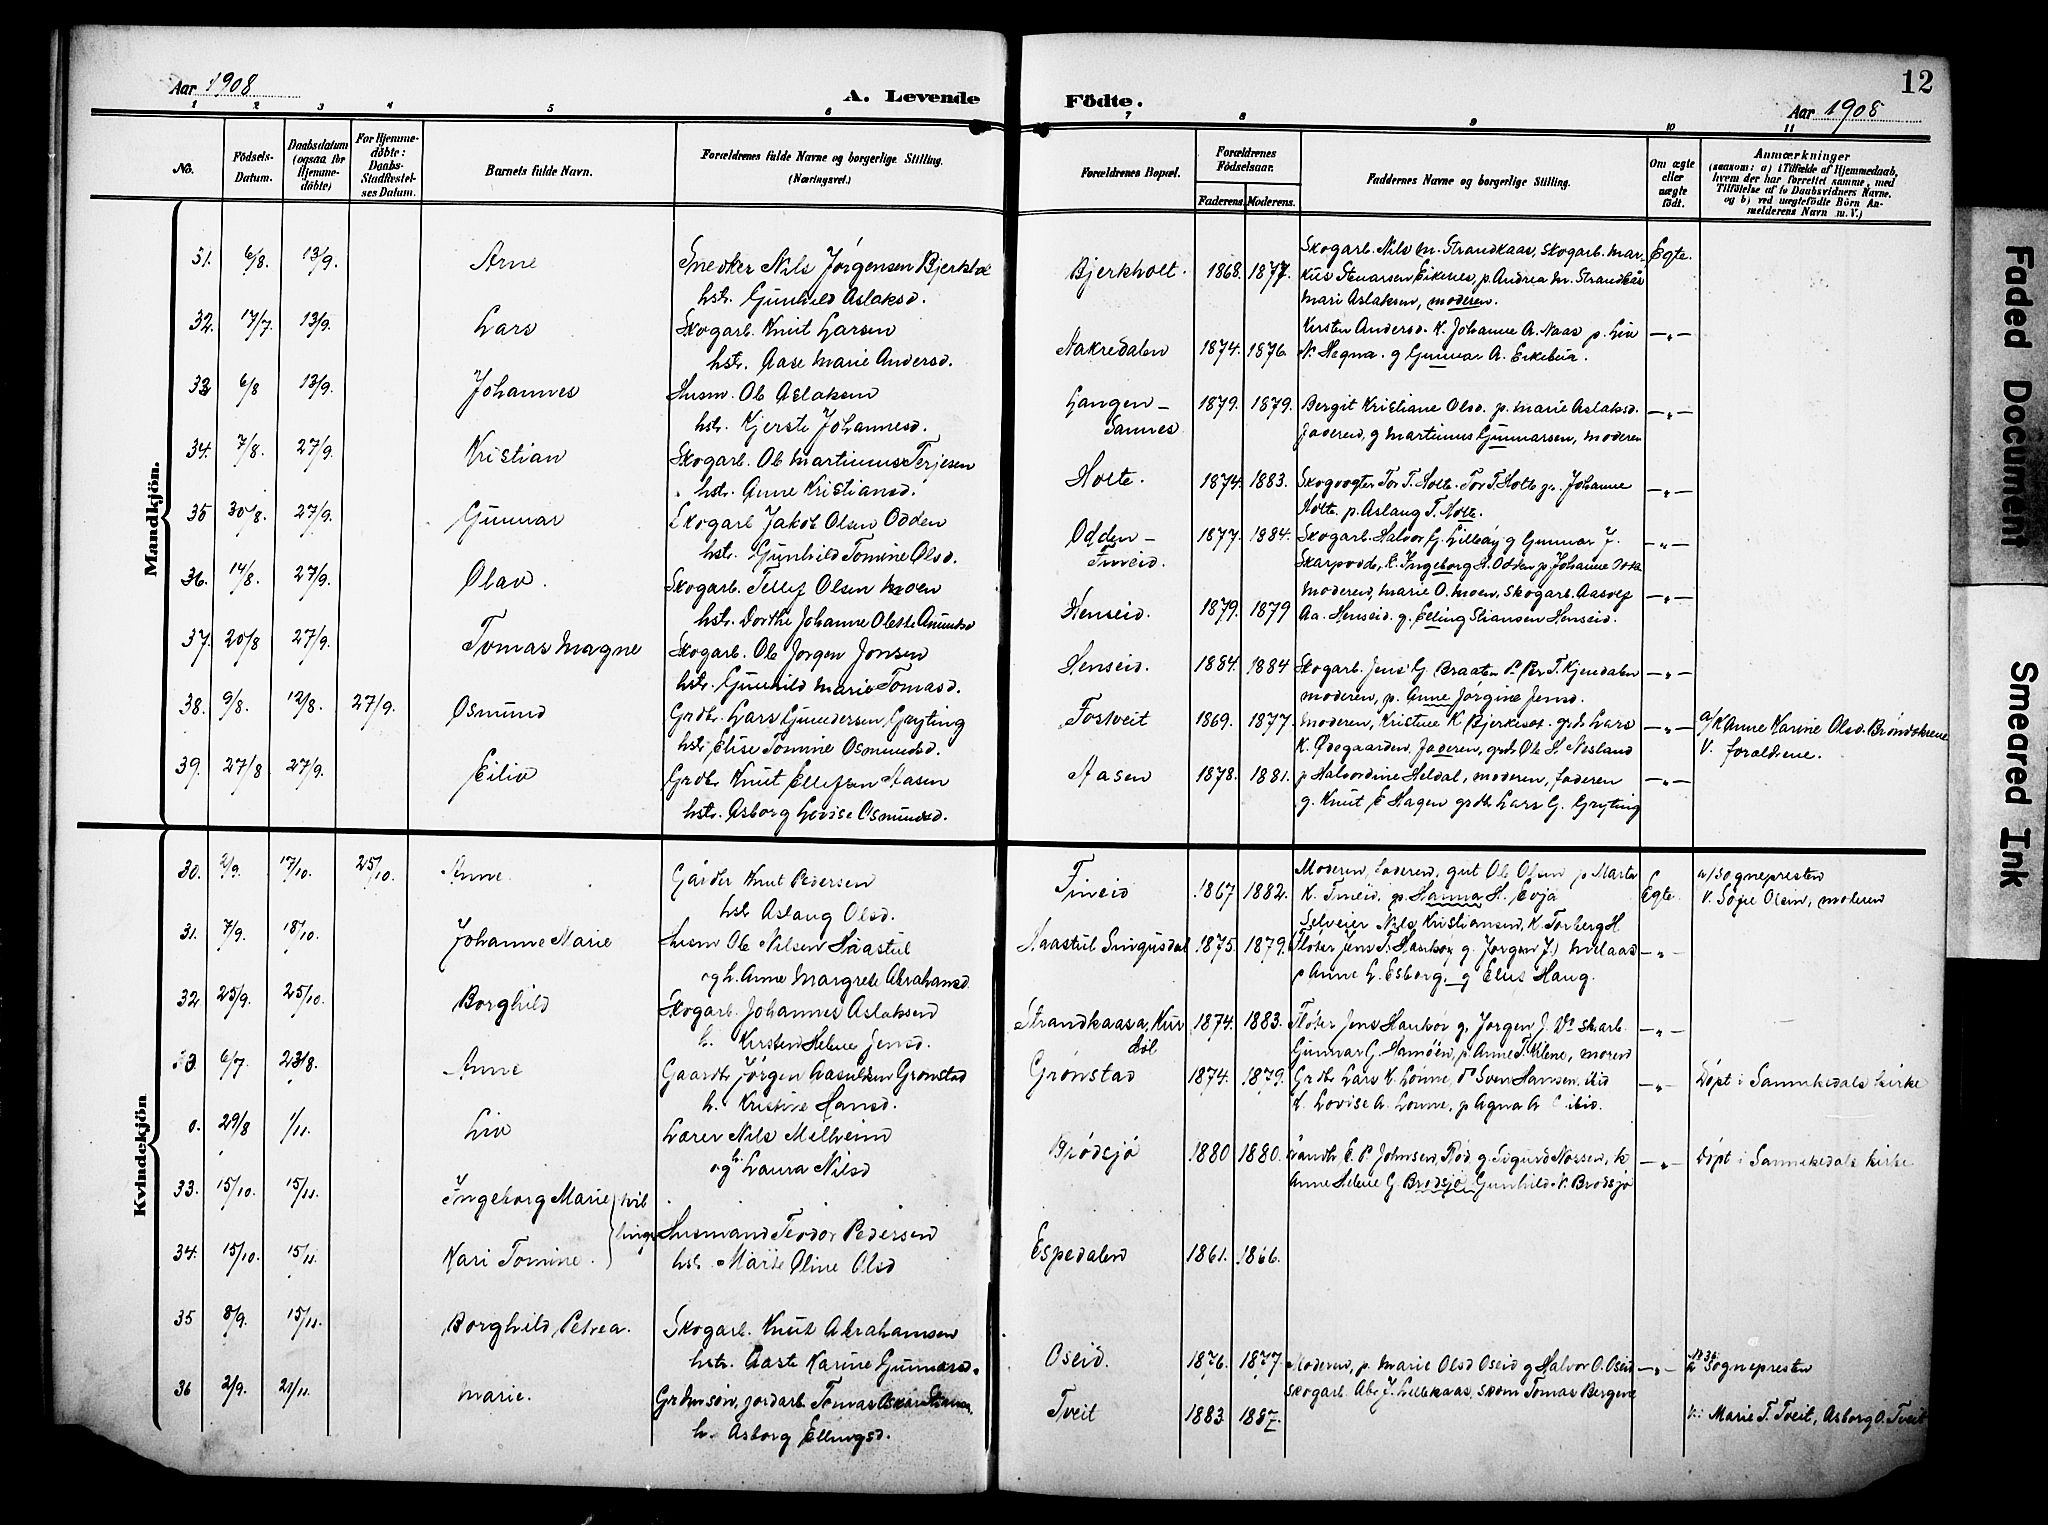 Aar 1908
A. Levende
Födte.
Aar 1908
12
1 2 3 4 5 6 7 8 9 10 11
No.
Födsels-Datum.
Daabsdatum (ogsaa for Hjemme-döbte)
For Hjemme-döbte: Daabs-Stadfæstel-ses Datum.
Barnets fulde Navn.
Forældrenes fulde Navne og borgerlige Stilling. (Næringsvei.)
Forældrenes Bopæl.
Forældrenes Födselsaar.
Faderens. Moderens.
Faddernes Navne og borgerlige Stilling.
Om ægte eller uægte födt.
Anmærkninger
(saasom: a) i Tilfælde af Hjemmedaab, hvem der har forrettet samme, med Tilföielse af to Daabsvidners Navne, og b) ved uægtefödte Börn An-melderens Navn m. V.)
Mandkjön.
31. 6/8. 13/9. Arne Snedker Nils Jørgensen Bjerkholt
hstr. Gunhild Aslaksd. Bjerkholt. 1868. 1877. Skogarb. Nils M. Strandkaas, Skogarb. Mar-
kus Stenarsen Eikenes, p. Andrea M. Strandkås
Mari Aslaksen, moderen. Egte.
32. 17/7. 13/9. Lars Skogarb. Knut Larsen
hstr. Aase Marie Andersd. Nakredalen 1874. 1876. Kirsten Andersd. K. Johanne A. Naas p. Liv
N. Hegna. g Gunnar A. —„—
33 6/8 13/9. Johannes Husm. Ole Aslaksen
hstr. Kjerste Johannesd. Langen-
Sannes 1879. 1879. Bergit Kristiane Olsd. p. Marie Aslaksd.
faderen, g Martinus Gunnarsen, moderen —„—
34. 7/8. 27/9. Kristian Skogarb. Ole Martinus Terjesen
hstr. Anne Kristiansd. Holte. 1874. 1883. Skogvogter Tor T. Holte. Tor T. Holte gr. Johanne
Holte. p. Aslaug T. Holte. —„—
35 30/8. 27/9. Gunnar Skogarb Jakob Olsen Odden
hstr. Gunhild Tomine Olsd. Odden-
Fineid. 1877. 1884. Skogarb. Halvor G. Lilleøy g Gunnar J.
K. Ingeborg H. Odden p Johanne —„—
36. 14/8. 27/9. Olav. Skogarb. Tellef Olsen Moen
hstr. Dorthe Johanne Olette Amundsd Henseid. 1879. 1879 Moderen, Marie O. Moen, Skogarb. Aasolf
Aa. Henseid. g. Elling Stiansen Henseid. —„—
37. 20/8 27/9. Tomas Magne Skogarb. Ole Jorgen Jonsen
hstr. Gunhild Marie Tomasd. Henseid. 1884. 1884 Skogarb. Jens G Braaten P. Per T. Kjendalen
moderen, p. Anne Jørgine Jensd. —„—
38. 9/8. 12/8. 27/9. Osmund Grdbr. Lars Gundersen Gryting
hstr. Elise Tomine Osmundsd. Fostveit 1869. 1877. Moderen, Kristine K Bjerkeset. grdb Lars
K. Ødegaarden, faderen, grdb Ole H. Nesland —„— a/ K Anne Karine Olsd. Brøndskene
V. foraldrene.
39. 27/8 27/9. Eiliv Grdbr Knut Ellefsen Aasen
hstr. Asborg Lovise Osmundsd. Aasen 1878. 1881. p Halvordine Heldal, moderen, faderen
g. Knut E Hagen grdb Lars G. Gryting —„—
Kvindekjön
30. 2/9. 17/10. 25/10. Anne. Gårdbr Knut Pedersen
hstr Aslaug Olsd. Fineid 1867 1882. Moderen, faderen, gut Ole Olsen p Marta
K. Fineid, p. Hanna H. Evja Egte. a/ Sognepresten
V. moderen
31. 7/9. 18/10. Johanne Marie Husm Ole Nilsen Haastul
og h. Anne Margrete Abrahamsd. Haastul Singusdal 1875. 1879. Selveier Nils Kristiansen, K. Torberg H
Fløter Jens T. Haukøy g. Jørgen J.
p Anne L. Esborg, g Elius Haug. —„—
32 25/9. 25/10. Borghild Skogarb. Johannes Aslaksen
h. Kirsten Helene Jensd. Strandkaasa, Kur
døl 1874. 1883. Fløter Jens Haukøy g. Jørgen J.
Gunnar G. p. Anne T. Klene, moren —„—
33 6/7. 23/8. Anne Gaardbr Jørgen Aasulvsen Grønstad
h. Kristine Hansd. Grønstad 1874. 1879. Grdbr Lars K. Lønne, Sven Hansen, ibid
K. Lovise A. Lønne, p Agna A ibid. —„— Døpt i Sannikedals kirke
0. 29/8 1/11. Liv Lærer Nils Mælheim
og h. Laura Nilsd Brødsjø 1880 1880. Gaardbr. E. P. Johnsen, Rød g. Sigurd Nossen, k
Anne Helene G. Brødsjø Gunhild N. Brødsjø —„— Døpt i Sannikedals kirke
33. 15/10. 15/11. Ingeborg Marie
tvil
linger
34. 15/10. 15/11. Kari Tomine. Husmand Teodor Pedersen
hstr. Marie Oline Olsd Espedalen 1861. 1866.
35 8/9. 15/11. Borghild Petrea. Skogarb. Knut Abrahamsen
hstr. Aaste Karine Gunnarsd. Oseid. 1876. 1877. Moderen, p. Marie Olsd Oseid g Halvor O. Oseid
skogarb Abr. J. Lillekaas, skom Tomas Bergene —„— a Sognepresten
36 2/9. 21/11. Marie. Grdmsøn, jordarb. Tomas
h. Asborg Ellingsd. Tveit 1883. 1887. V: Marie T. Tveit, Asborg O. Tveit
Faded Document
Smeared Ink